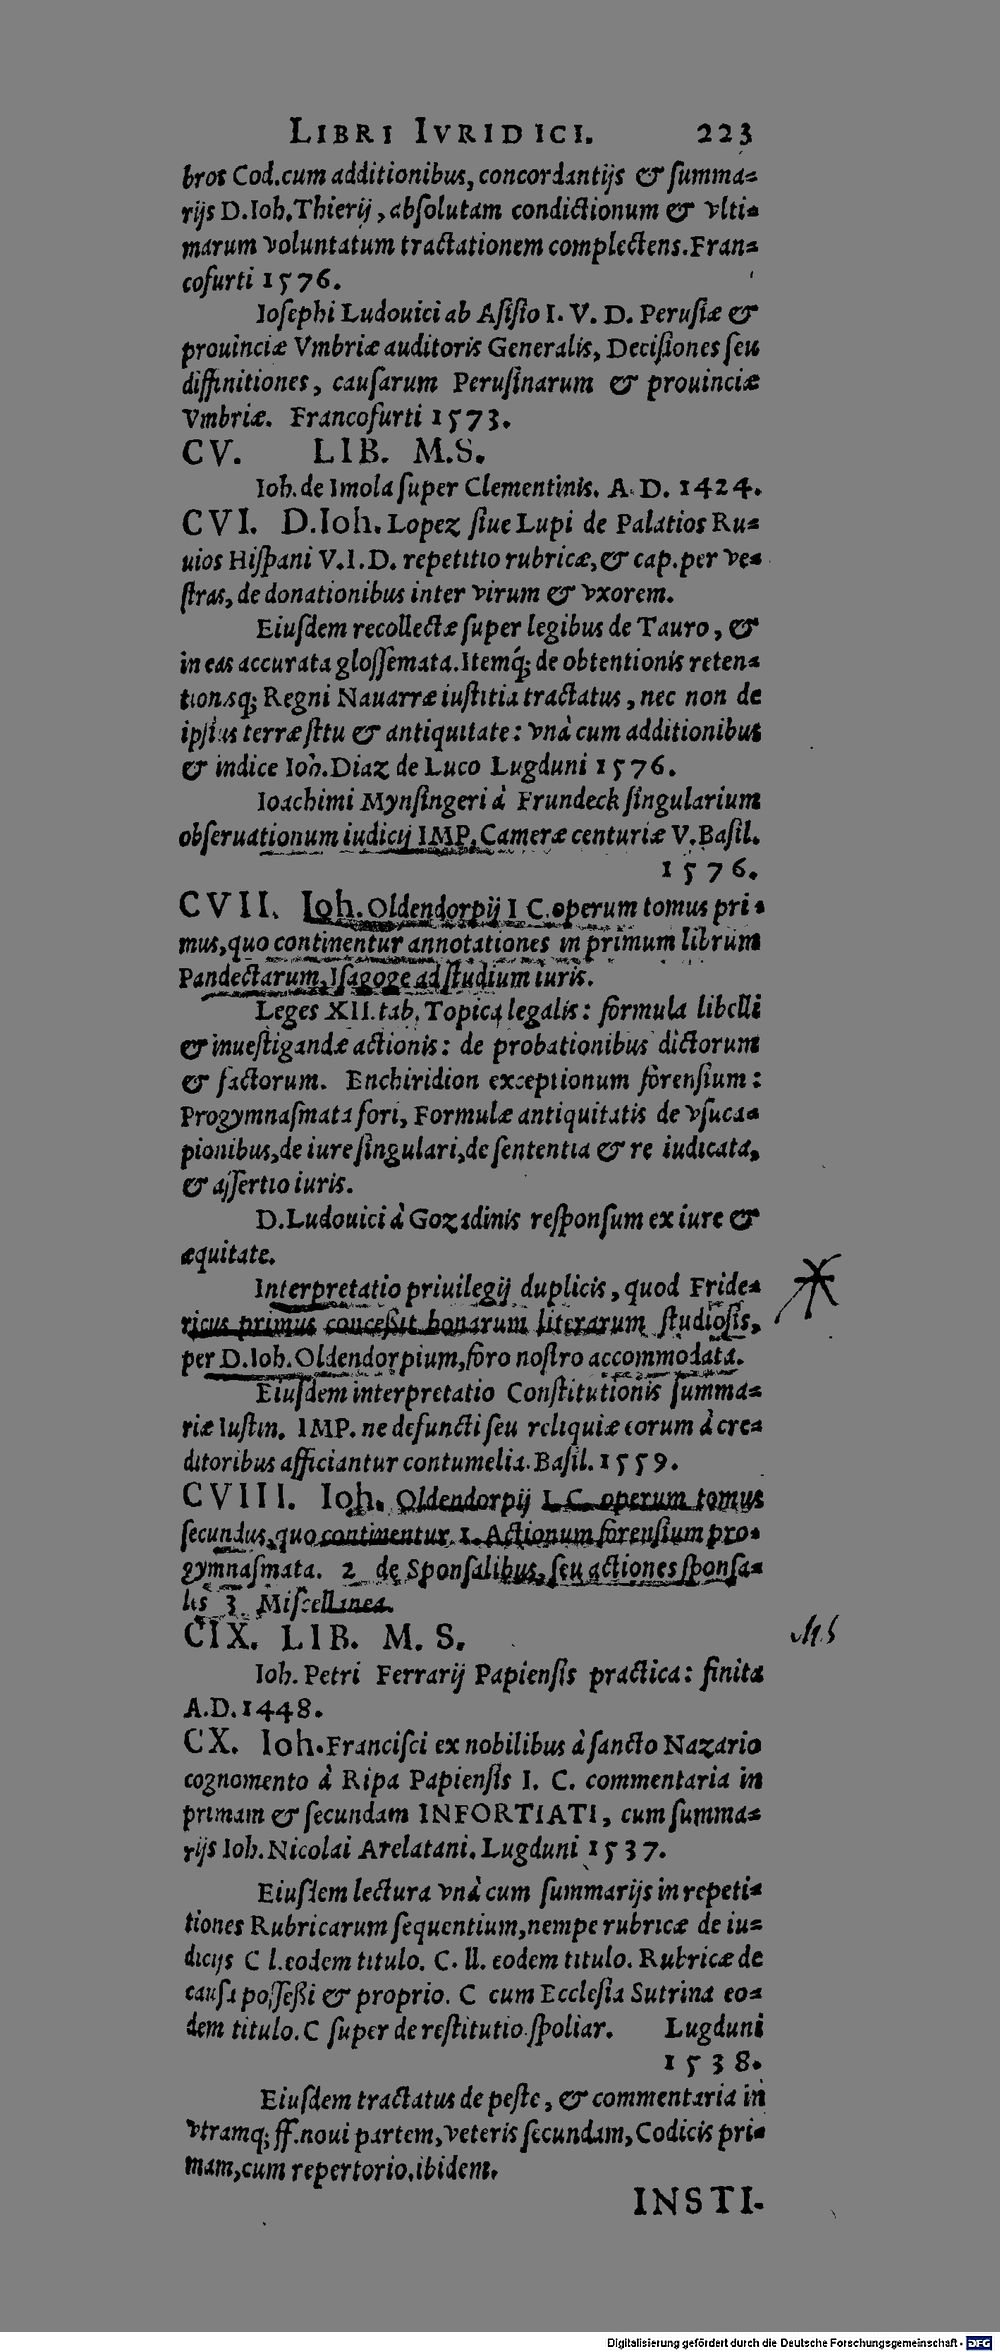 LIBRI IVRIDICI. 223
bros Cod. cum additionibus, concordantijs & ſumma⸗
rijs D. Ioh. Thierij, abſolutam condictionum & vlti⸗
marum voluntatum tractationem complectens. Fran⸗
cofurti 1576.
Ioſephi Ludouici ab Aſiſio I. V. D. Peruſiæ &
prouinciæ Vmbriæ auditoris Generalis, Deciſiones ſeu
diffinitiones, cauſarum Peruſinarum & prouinciæ
Vmbriæ. Francofurti 1573.
CV. LIB. M.S.
Ioh. de Imola ſuper Clementinis. A. D. 1424.
CVI. D. Ioh. Lopez ſiue Lupi de Palatios Ru⸗
uios Hiſpani V. I. D. repetitio rubricæ, & cap. per ve⸗
ſtras, de donationibus inter virum & vxorem.
Eiuſdem recollectæ ſuper legibus de Tauro, &
in eas accurata gloſſemata. Itemq́; de obtentionis reten⸗
tionisq; Regni Nauarræ iuſtitia tractatus, nec non de
ipſius terræ ſitu & antiquitate: vnà cum additionibus
& indice Ioh. Diaz de Luco Lugduni 1576.
Ioachimi Mynſingeri à Frundeck ſingularium
obſeruationum iudicij IMP. Cameræ centuriæ V. Baſil.
1576.
CVII. Ioh. Oldendorpij I C. operum tomus pri⸗
mus, quo continentur annotationes in primum librum
Pandectarum, Iſagoge ad ſtudium iuris.
Leges XII. tab. Topica legalis: formula libelli
& inueſtigandæ actionis: de probationibus dictorum
& factorum. Enchiridion exceptionum forenſium:
Progymnaſmata fori, Formulæ antiquitatis de vſuca⸗
pionibus, de iure ſingulari, de ſententia & re iudicata,
& aſſertio iuris.
D. Ludouici à Gozadinis reſponſum ex iure &
æquitate.
Interpretatio priuilegij duplicis, quod Fride⸗
ricus primus conceßit bonarum literarum ſtudioſis,
per D. Ioh. Oldendorpium, foro noſtro accommodata.
Eiuſdem interpretatio Conſtitutionis ſumma⸗
riæ Iuſtin. IMP. ne defuncti ſeu reliquiæ eorum à cre⸗
ditoribus afficiantur contumelia. Baſil. 1559.
CVIII. Ioh. Oldendorpij I. C. operum tomus
ſecundus, quo continentur. 1. Actionum forenſium pro⸗
gymnaſmata. 2 de Sponſalibus, ſeu actiones ſponſa⸗
lis 3 Miſcellanea.
CIX. LIB. M. S. MS
Ioh. Petri Ferrarij Papienſis practica: finita
A.D. 1448.
CX. Ioh. Franciſci ex nobilibus à ſancto Nazario
cognomento à Ripa Papienſis I. C. commentaria in
primam & ſecundam INFORTIATI, cum ſumma⸗
rijs Ioh. Nicolai Arelatani. Lugduni 1537.
Eiuſdem lectura vnà cum ſummarijs in repeti⸗
tiones Rubricarum ſequentium, nempe rubricæ de iu⸗
dicijs C l. eodem titulo. C. ll. eodem titulo. Rubricæ de
cauſa poſſeßi & proprio. C cum Eccleſia Sutrina eo⸗
dem titulo. C ſuper de reſtitutio. ſpoliar. Lugduni
1538.
Eiuſdem tractatus de peſte, & commentaria in
vtramq; ff. noui partem, veteris ſecundam, Codicis pri⸗
mam, cum repertorio, ibidem.
INSTI-
Digitalisierung gefördert durch die Deutsche Forschungsgemeinschaft - DFG